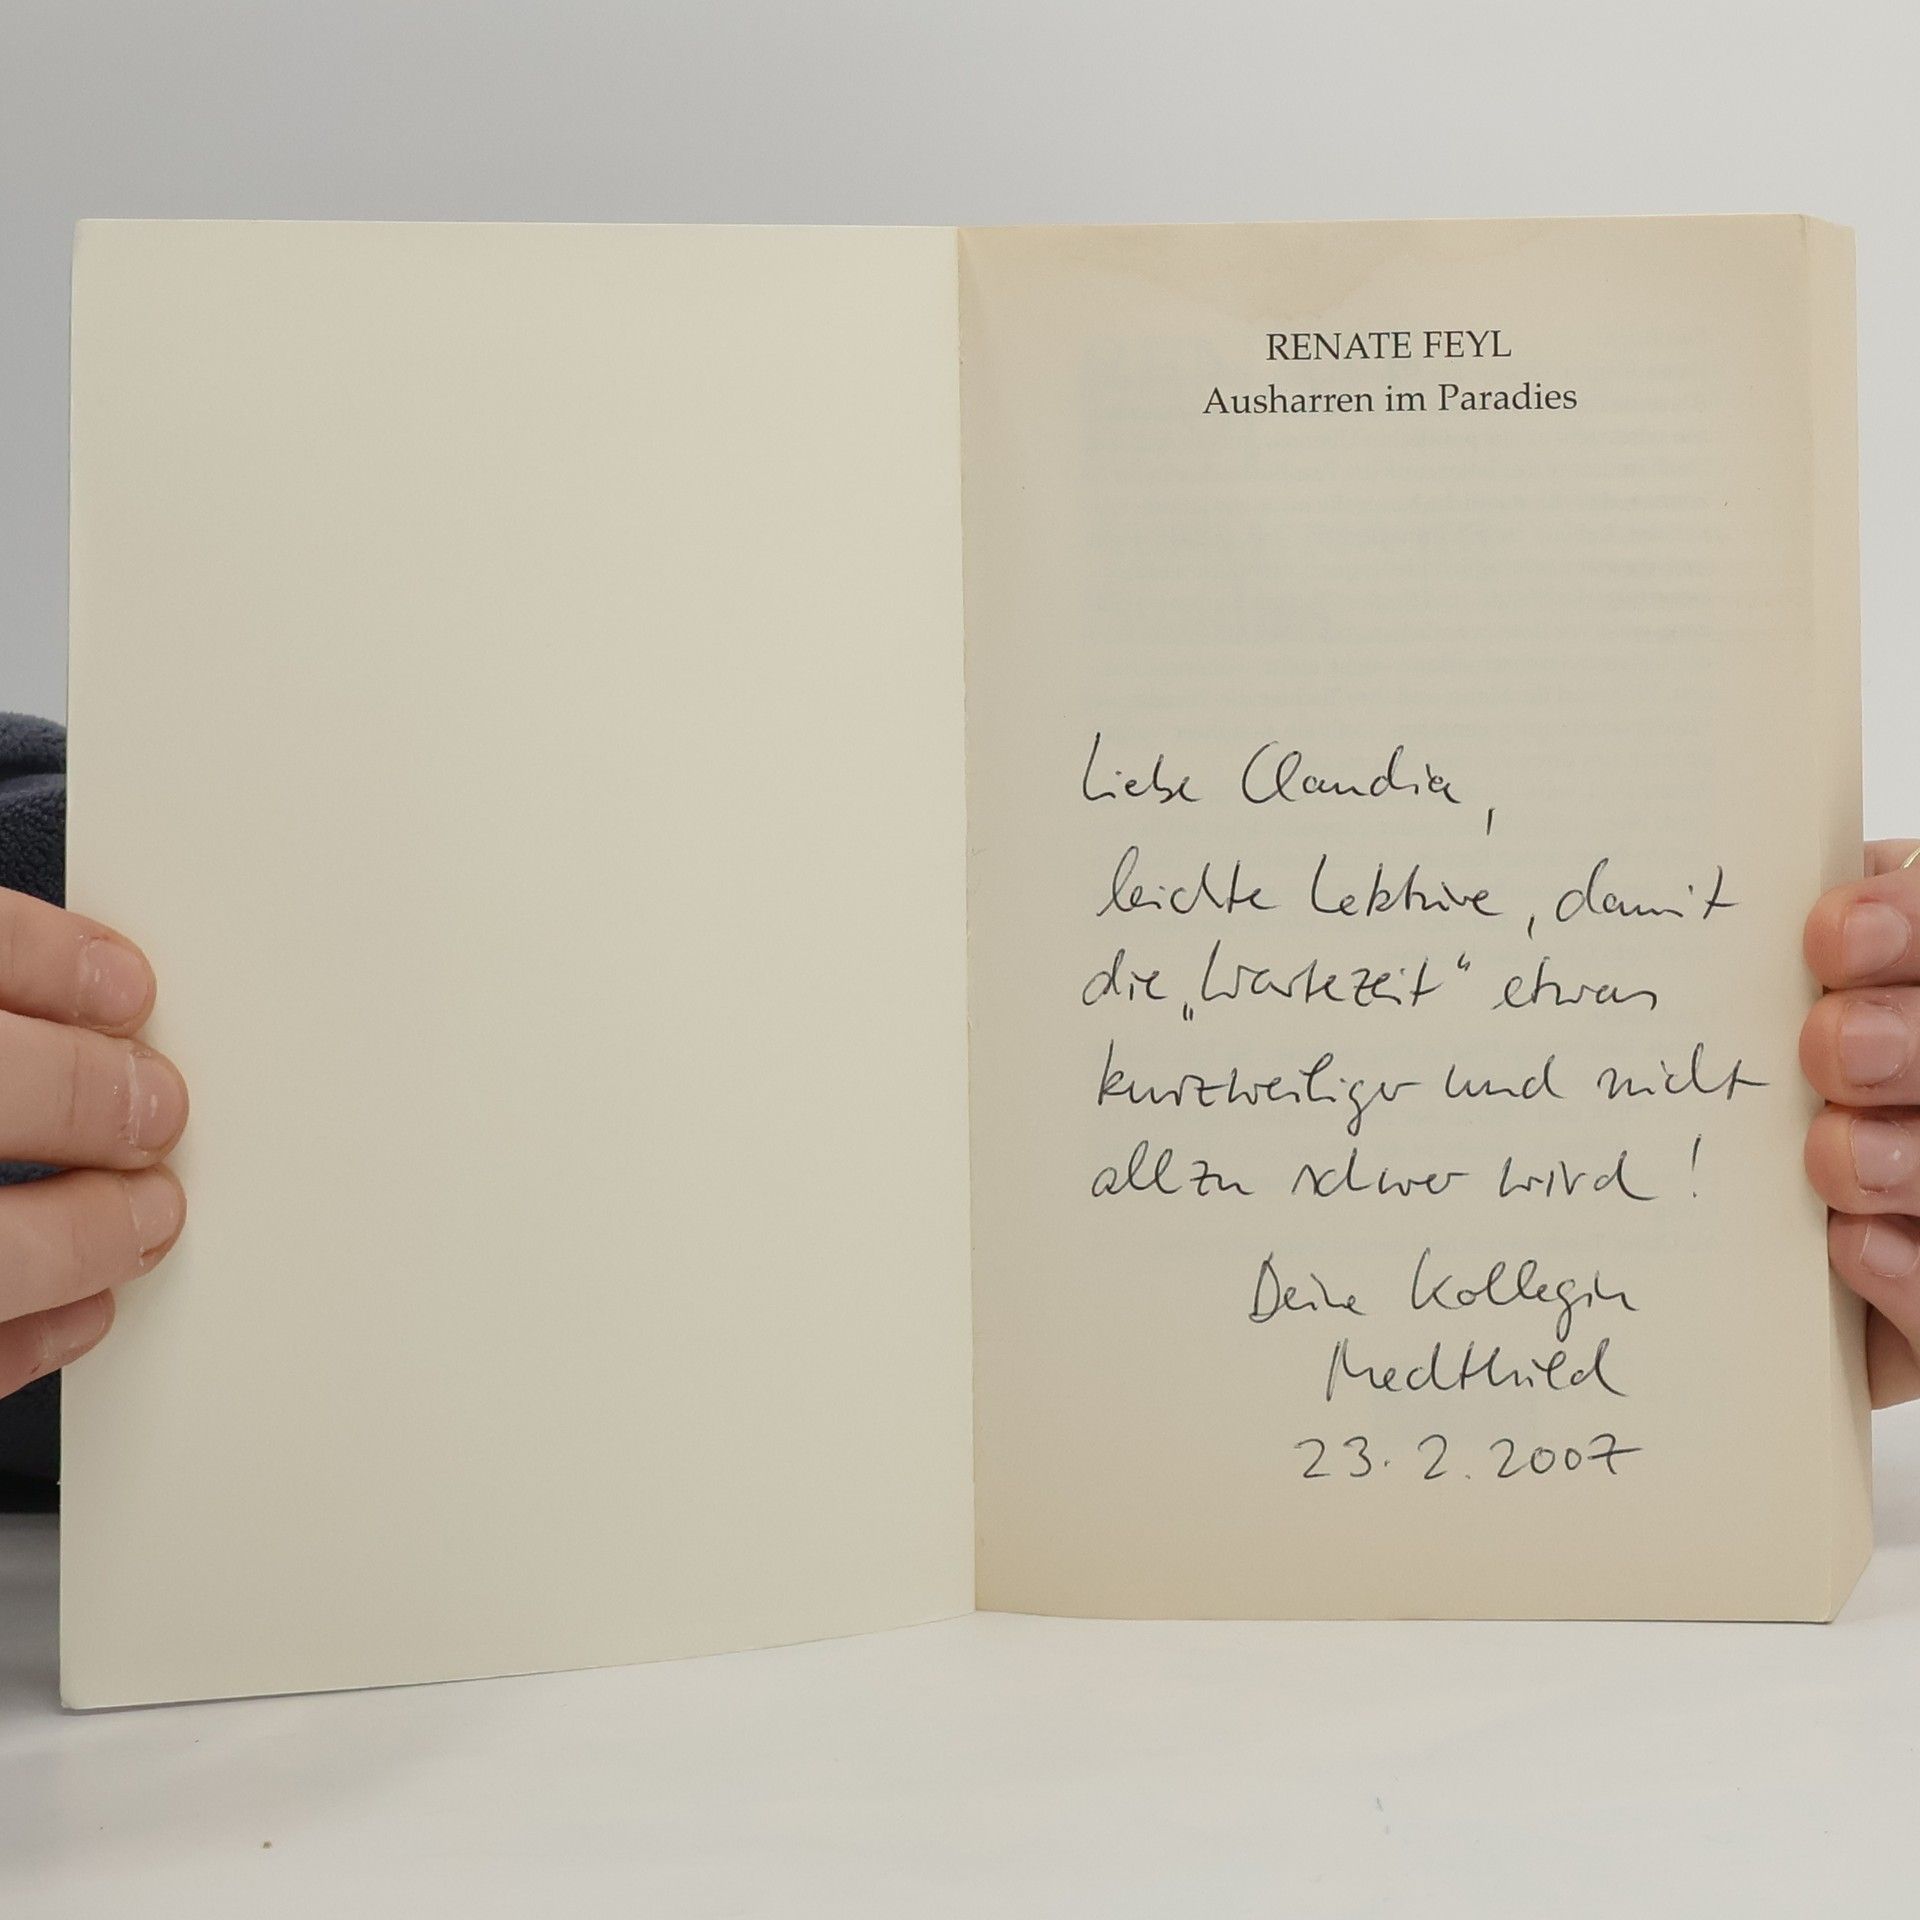 RENATE FEYL
Ausharren im Paradies
Liebe Claudia,
leichte Lektüre, damit
die „Wartezeit“ etwas
kurzweiliger und nicht
allzu schwer wird!
Deine Kollegin
Mechthild
23.2.2007